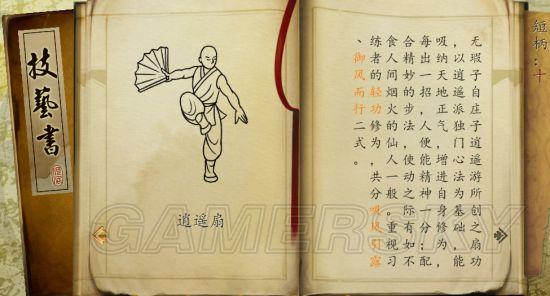 技藝書
逍遥扇
无瑕子自庄子逍遥游所创之扇功
，以逍遥派独门心法为基础，能
吸纳天地正气，增进自身修为，
每出一招，人便能精神一分；配
合精妙的步法，使动之际有如不
食人间烟火的仙人一般。重视习
练者的轻功修为，共分吸风引露
、御风而行二式。
短柄：十
GAMERSKY